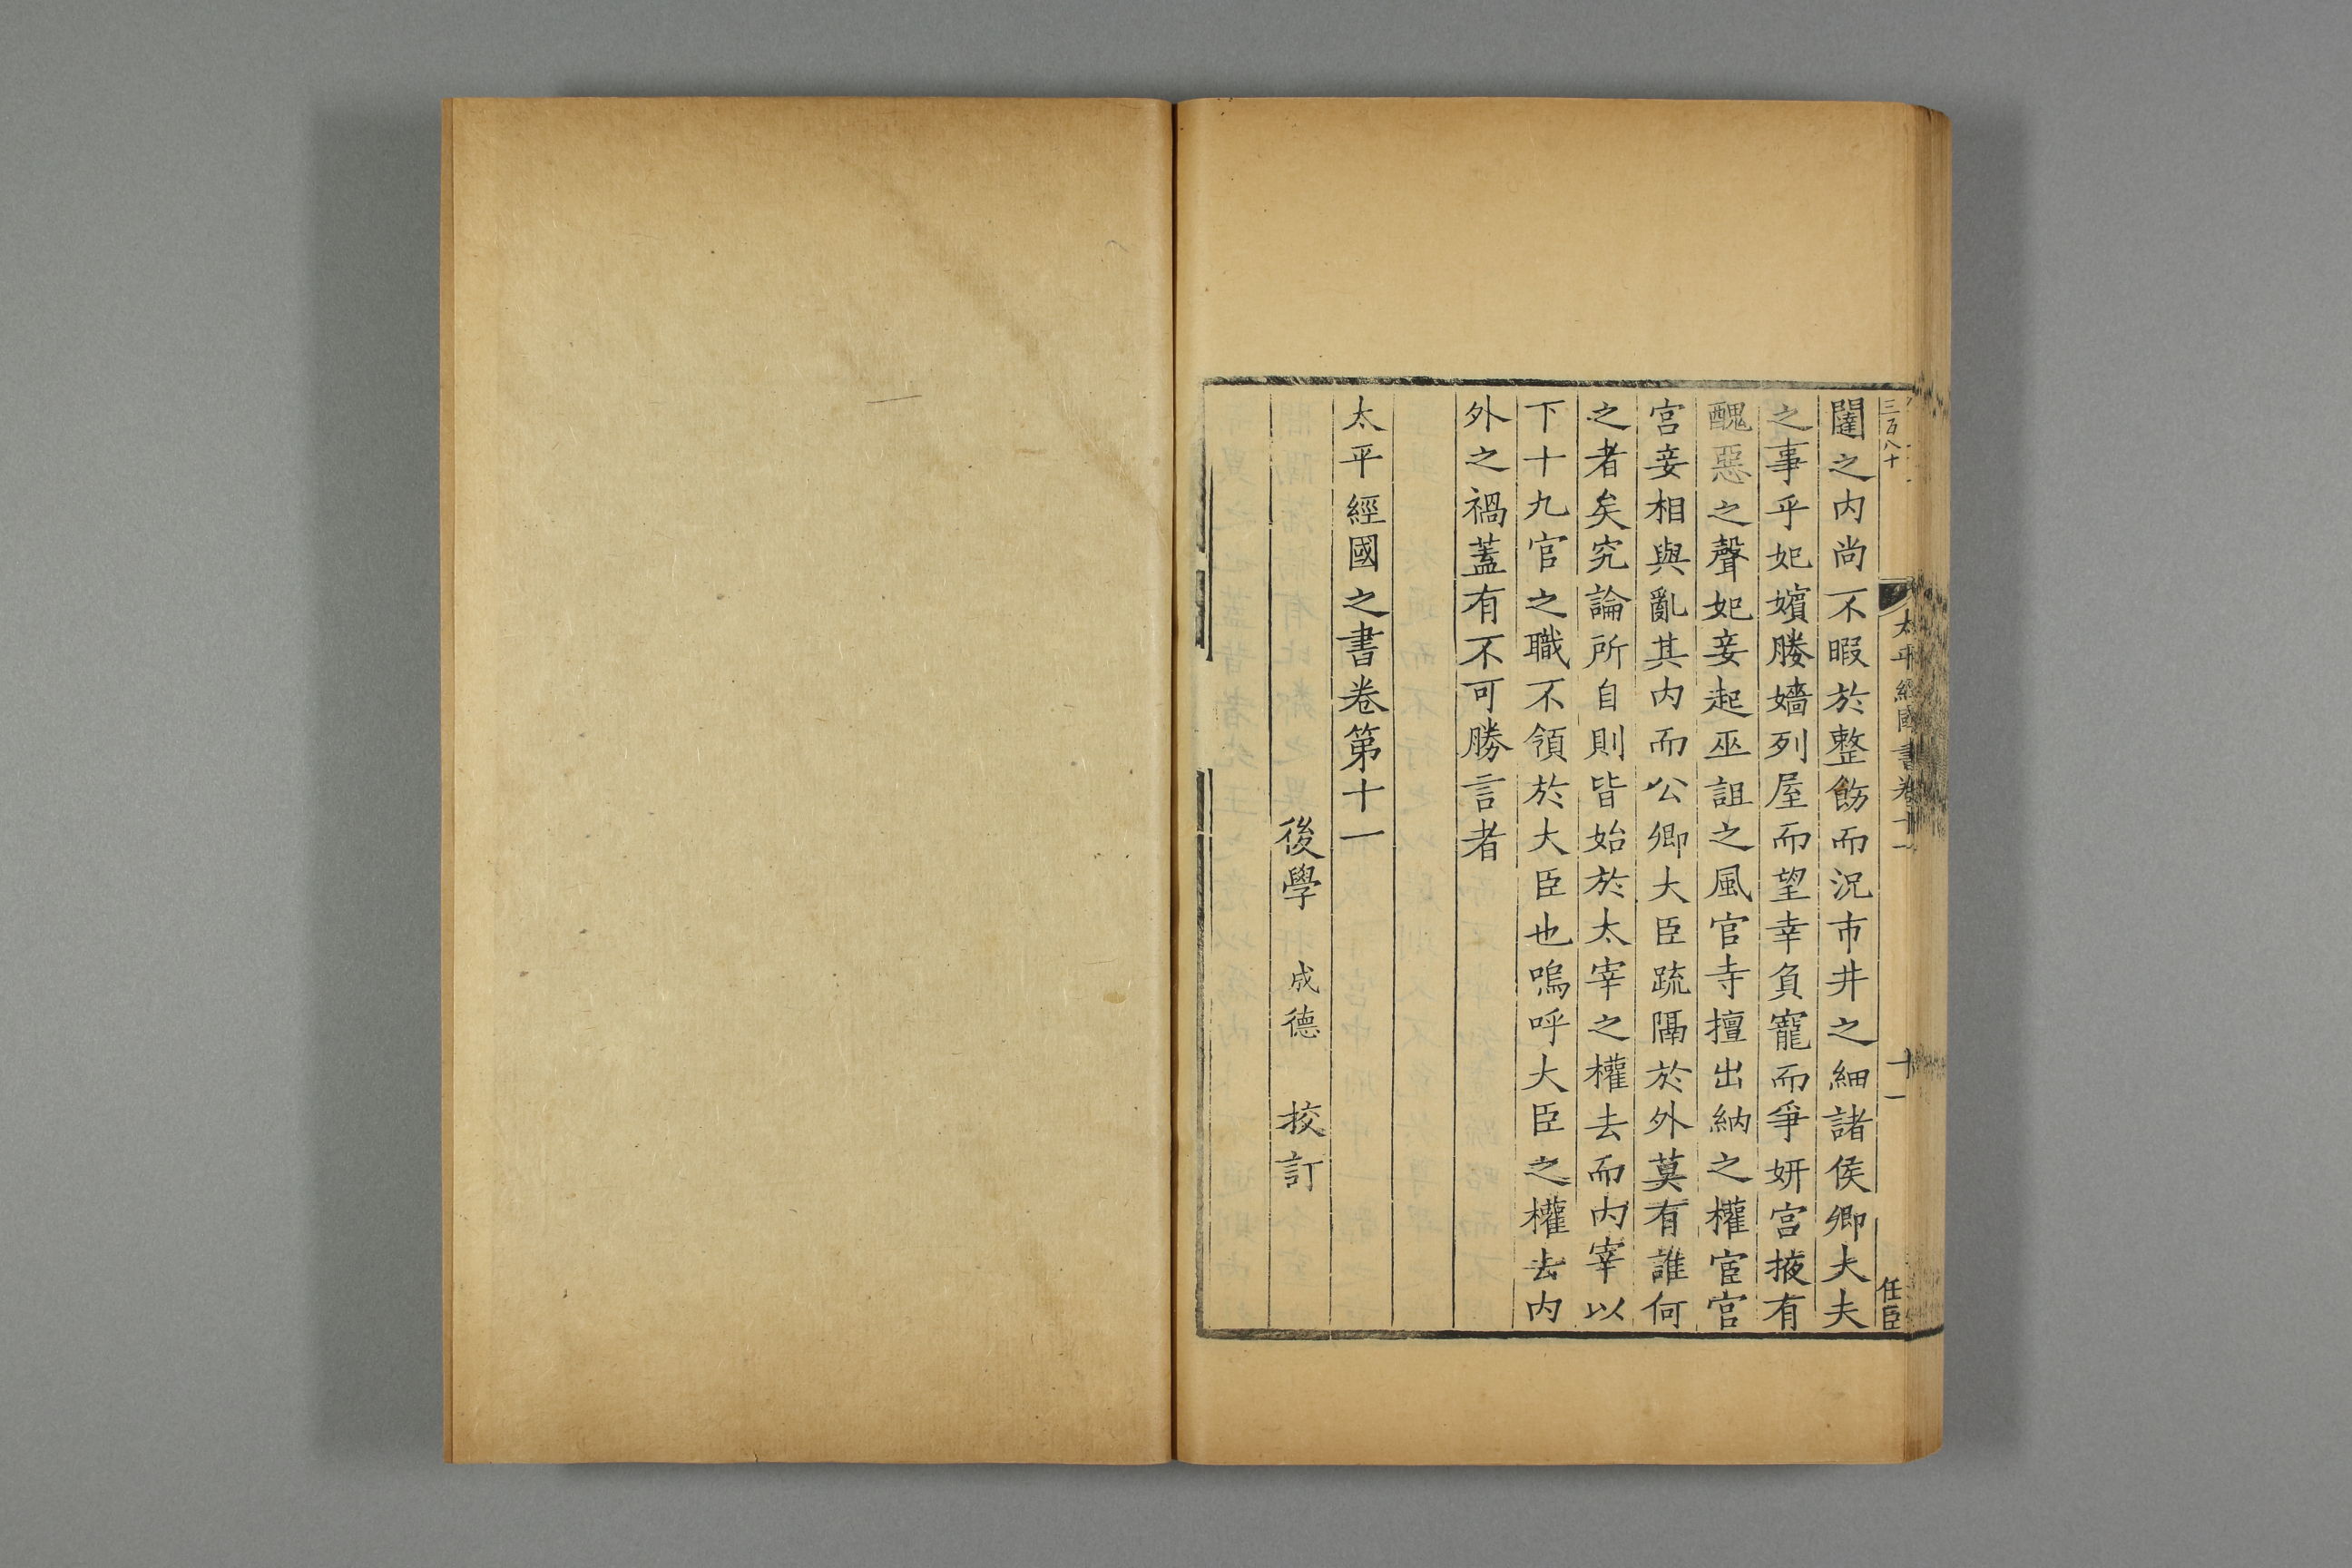 三百八十
太平經國書卷十一
十一
任臣
闥之内尚不暇於整飭而況市井之細諸侯卿大夫
之事乎妃嬪媵嬙列屋而望幸負寵而爭妍宫掖有
醜惡之聲妃妾起巫詛之風官寺擅出納之權宦官
宫妾相與亂其内而公卿大臣疏隔於外莫有誰何
之者矣究論所自則皆始於太宰之權去而内宰以
下十九官之職不領於大臣也嗚呼大臣之權去内
外之禍蓋有不可勝言者
太平經國之書卷第十一
後學 成德 挍訂